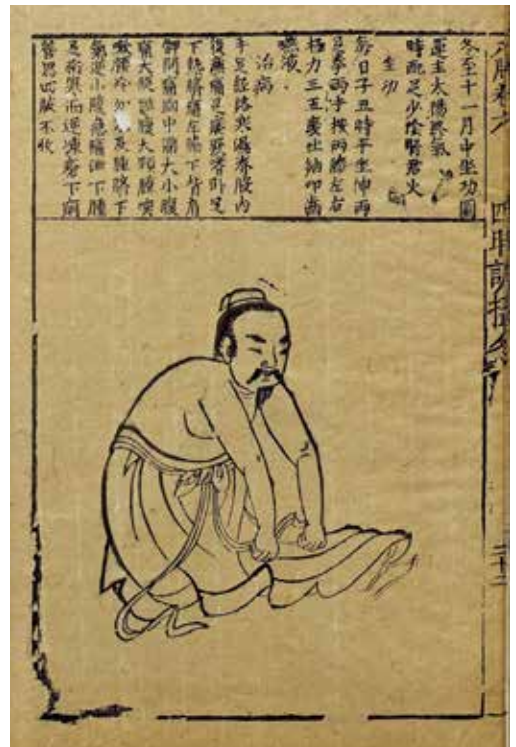 卷六
四時調攝
三十二
冬至十一月中坐功圖
運主太陽終氣
時配足少陰腎君火
坐功
每日子丑時平坐伸兩
足拳兩手按兩膝左右
極力三五度吐納叩齒
嚥液
治病
手足經絡寒濕脊股內
後廉痛足痿厥嗜卧足
下熱臍痛左脇下背肩
髀間痛胸中滿大小腹
痛大便難腹大頸腫咳
嗽腰冷如及腫臍下
氣逆小腹急痛泄下腫
足胻寒而逆凍瘡下痢
善思四肢不收